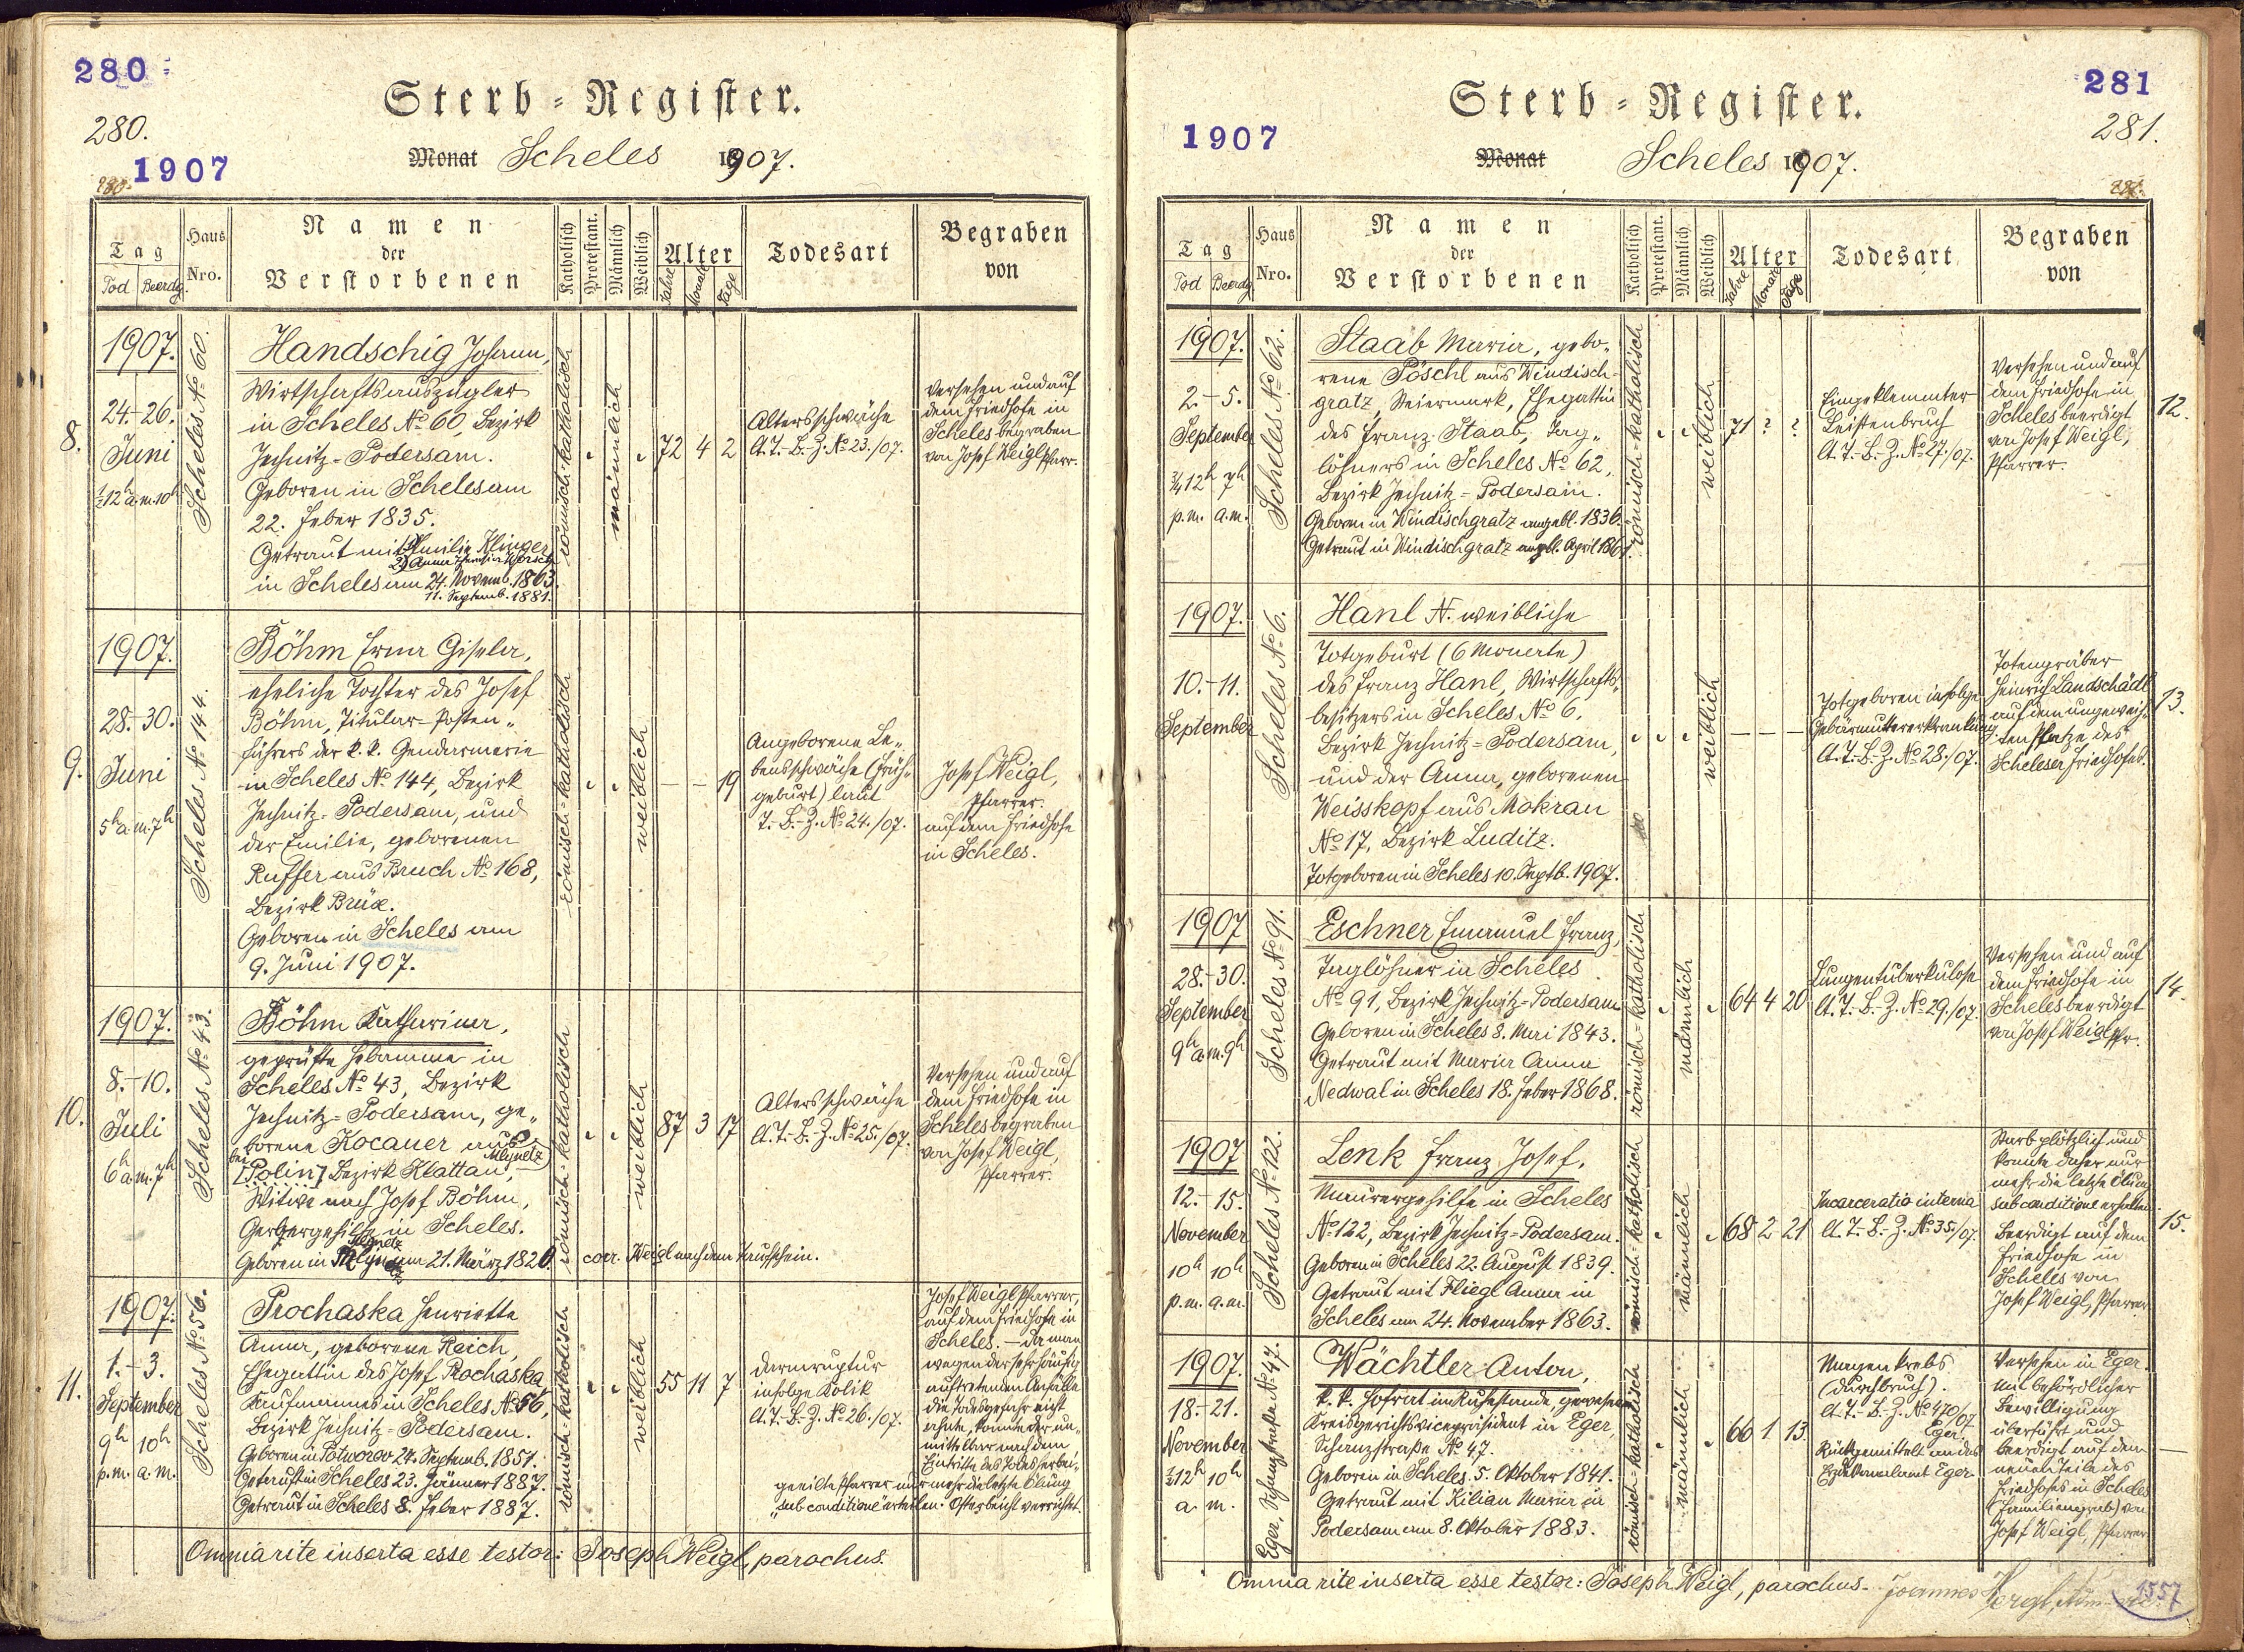 280
280.
1907
280.
Sterb-Register.
Monat Scheles 1907.
Tag
Tod Beerdg.
Haus Nro.
Namen
der
Verstorbenen
Katholisch
Protestant.
Männlich
Weiblich
Alter
Jahre
Monate
Tage
Todesart
Begraben
von
8.
1907.
24.-26.
Juni
½12h a.m. 10h
Scheles No 60.
Handschig Johann,
Wirtschaftsauszügler
in Scheles No 60, Bezirk
Jechnitz-Podersam.
Geboren in Scheles am
22. Feber 1835.
Getraut mit 1) Emilie Klinger
2) Anna Worsch
in Scheles am 24. Novemb. 1863.
11. Septemb. 1881.
römisch-katholisch
männlich
72 4 2
Altersschwäche
lt. T.-B.-Z. No 23./07.
Versehen und auf
dem Friedhofe in
Scheles begraben
von Josef Weigl, Pfarr.
9.
1907.
28.-30.
Juni
5h a.m. 7h
Scheles No 144.
Böhm Erna Gisela,
eheliche Tochter des Josef
Böhm, Titular-Posten-
führers der k. k. Gendarmerie
in Scheles No 144, Bezirk
Jechnitz-Podersam, und
der Emilie, geborenen
Ruffer aus Bruch No 168,
Bezirk Brüx.
Geboren in Scheles am
9. Juni 1907.
römisch-katholisch
weiblich
— — 19
Angeborene Le-
bensschwäche (Früh-
geburt) laut
T.-B.-Z. No 24./07.
Josef Weigl,
Pfarrer.
auf dem Friedhofe
in Scheles.
10.
1907.
8.-10.
Juli
6h a.m. 7h
Scheles No 43.
Böhm Katharina,
geprüfte Hebamme in
Scheles No 43, Bezirk
Jechnitz-Podersam, ge-
borene Kocauer aus
bei Mlynetz
[Polin] Bezirk Klattau,
Witwe nach Josef Böhm,
Gerbergehilfe in Scheles.
Geboren in am 21. März 1820.
corr. Weigl nach dem Taufschein.
römisch-katholisch
weiblich
87 3 17
Altersschwäche
lt. T.-B.-Z. No 25./07.
Versehen und auf
dem Friedhofe in
Scheles begraben
von Josef Weigl,
Pfarrer.
11.
1907.
1.-3.
September
9h 10h
p.m. a.m.
Scheles No 56.
Prochaska Henriette
Anna, geborene Reich,
Ehegattin des Josef Prochaska
Kaufmannes in Scheles No 56,
Bezirk Jechnitz-Podersam.
Geboren in Potworov 24. Septemb. 1851.
Getauft in Scheles 23. Jänner 1887.
Getraut in Scheles 8. Feber 1887.
römisch-katholisch
weiblich
55 11 7
Darmruptur
infolge Kolik
lt. T.-B.-Z. No 26./07.
Josef Weigl, Pfarrer,
auf dem Friedhofe in
Scheles. — Da man
wegen der sehr häufig
auftretenden Anfälle
die Todesgefahr nicht
ahnte, konnte der un-
mittelbar nach dem
Eintritte des Todes herbei-
geeilte Pfarrer nur mehr die letzte Ölung
"sub conditione" erteilen. Osterbeicht verrichtet.
Omnia rite inserta esse testor: Joseph Weigl, parochus.
281
281.
1907
281.
Sterb-Register.
Monat Scheles 1907.
Tag
Tod Beerdg
Haus Nro.
Namen
der
Verstorbenen
Katholisch
Protestant.
Männlich
Weiblich
Alter
Jahre
Monate
Tage
Todesart
Begraben
von
1907.
2.-5.
September
¾12h 7h
p.m. a.m.
Scheles No 62.
Staab Maria, gebo-
rene Pöschl aus Windisch-
gratz, Steiermark, Ehegattin
des Franz Staab, Tag-
löhners in Scheles No 62,
Bezirk Jechnitz-Podersam.
Geboren in Windischgratz angebl. 1836.
Getraut in Windischgratz angbl. April 1861.
römisch-katholisch
weiblich
71 ? ?
Eingeklemmter
Leistenbruch
lt. T.-B.-Z. No 27./07.
Versehen und auf
dem Friedhofe in
Scheles beerdigt
von Josef Weigl,
Pfarrer.
12.
1907.
10.-11.
September
Scheles No 6.
Hanl N. weibliche
Totgeburt (6 Monate)
des Franz Hanl, Wirtschafts-
besitzers in Scheles No 6,
Bezirk Jechnitz-Podersam,
und der Anna, geborenen
Weisskopf aus Mokrau
No 17, Bezirk Luditz.
Totgeboren in Scheles 10. Septb. 1907.
weiblich
— — —
Totgeboren infolge
Gebärmuttererkrankung
lt. T.-B.-Z. No 28./07.
Totengräber
Heinrich Landschädl
auf dem ungeweih-
ten Platze des
Scheleser Friedhofes.
13.
1907
28.-30.
September
9h a.m. 9h
Scheles No 91.
Eschner Emanuel Franz,
Taglöhner in Scheles
No 91, Bezirk Jechnitz-Podersam
Geboren in Scheles 8. Mai 1843.
Getraut mit Maria Anna
Nedwal in Scheles 18. Feber 1868.
römisch-katholisch
männlich
64 4 20
Lungentuberkulose
lt. T.-B.-Z. No 29./07.
Versehen und auf
dem Friedhofe in
Scheles beerdigt
von Josef Weigl, Pfr.
14.
1907
12.-15.
November
10h 10h
p.m. a.m.
Scheles No 122.
Lenk Franz Josef,
Maurergehilfe in Scheles
No 122, Bezirk Jechnitz-Podersam.
Geboren in Scheles 22. August 1839.
Getraut mit Fliegl Anna in
Scheles am 24. November 1863.
römisch-katholisch
männlich
68 2 21
Incarceratio interna
lt. T.-B.-Z. No 35/07.
Starb plötzlich und
konnte daher nur
mehr die letzte Ölung
sub conditione erhalten.
Beerdigt auf dem
Friedhofe in
Scheles von
Josef Weigl, Pfarrer
15.
1907.
18.-21.
November
½12h 10h
a. m.
Eger, Schanzstraße No 47.
Wächtler Anton,
k. k. Hofrat im Ruhestande, gewesener
Kreisgerichtsvicepräsident in Eger,
Schanzstraße No 47.
Geboren in Scheles 5. Oktober 1841.
Getraut mit Kilian Maria in
Podersam am 8. Oktober 1883.
römisch-katholisch
männlich
66 1 13
Magenkrebs
(Durchbruch).
lt. T.-B.-Z. No 470/07
Eger.
Rückgemittelt an das
Erzdekanalamt Eger.
Versehen in Eger.
Mit behördlicher
Bewilligung
überführt und
beerdigt auf dem
neuen Teile des
Friedhofes in Scheles
(Familiengrab) von
Josef Weigl, Pfarrer
—
Omnia rite inserta esse testor: Joseph Weigl, parochus.
Joannes
1557